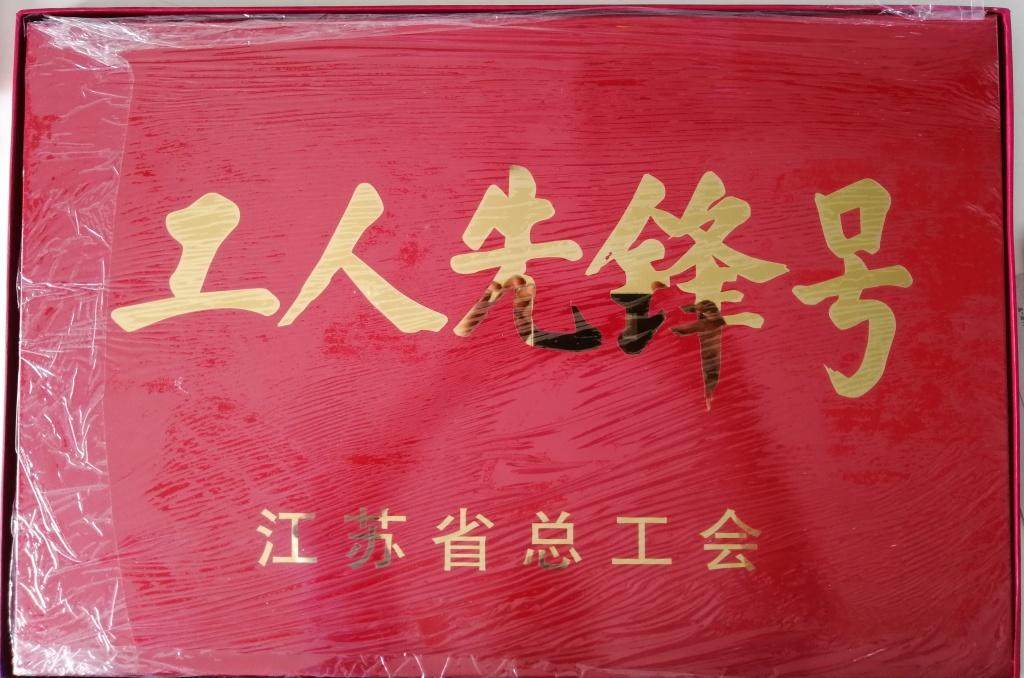 工人先锋号
江苏省总工会